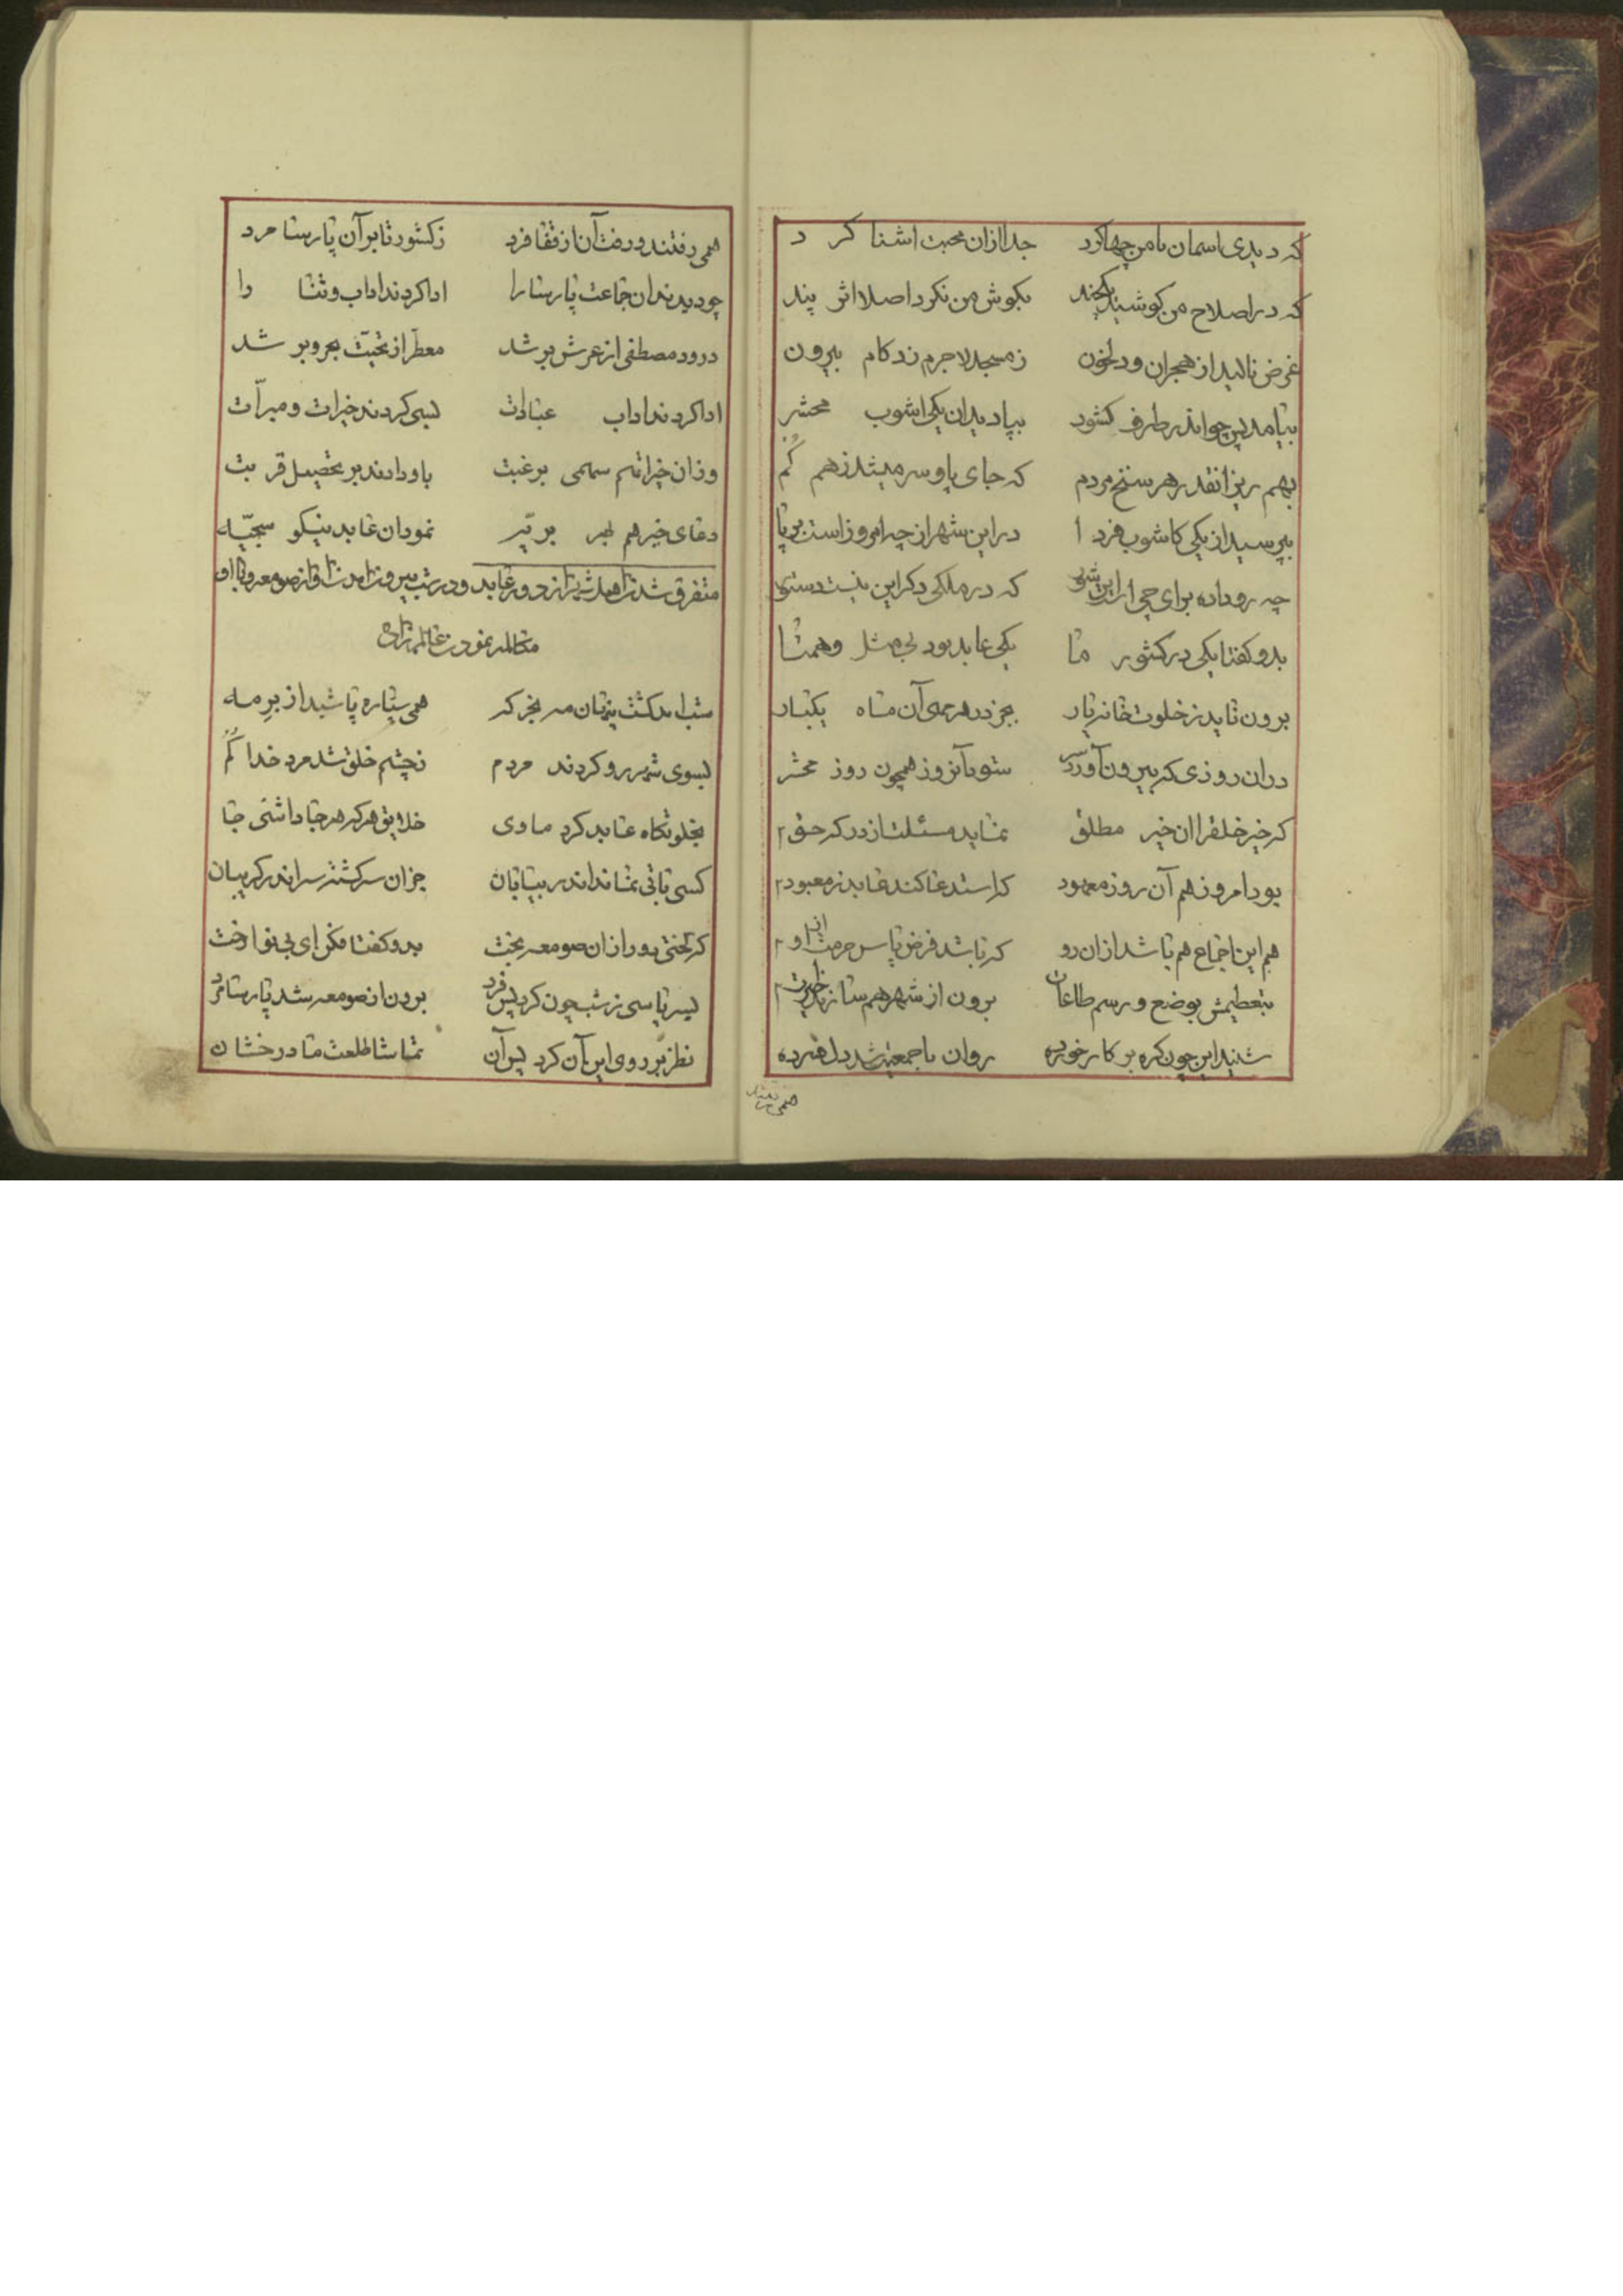 که دیدی اسمان با من چها کرد جدا ازان محبت اشنا کرد
که در اصلاح من کوشید یکچند بکوش من نکرد اصلا اثر پند
غرض نالید از هجران و دلخون ز مسجد لاجرم زد کام بیرون
بیامد پس چو اندر طرف کشور بپا دید ان یکی اشوب محشر
بهم ریز انقدر هر سنخ مردم که جای پا و سر میشد ز هم کم
بپرسید از یکی کاشوب فردا در این شهر از چه امروز است برپا
چه رو داده برای چی که در ملکی دکر این نیست دستور
بدو کفتا یکی در کشور ما یکی عابد بود بی مثل و همتا
برون ناید ز خلوت خانه یار بجز در هر مهی آن ماه یکبار
در ان روزی که بیرون آورد سر شود آنروز همچون روز محشر
که خیر خلق را ان خیر مطلق نماید مسئلت از درکه حق
بود امروز هم آن روز معهود که استدعا کند عابد ز معبود
هم این اجتماع هم باشد ازان رو که باشد فرض پاس حرمت او
بتعظیمش بوضع و رسم طاعات برون از شهر هم سازند
شنید این چون کره بر کار خورده روان با جمعیت شد دل فسرده
همی رفتند
همی رفتند و رفت آن از قفا فرد ز کشور تا بر آن پارسا مرد
چو دیدند ان جماعت پارسا را ادا کردند اداب و ثنا را
درود مصطفی از عرش بر شد معطر از تحیت بحر و بر شد
ادا کردند اداب عبادات بسی کردند خیرات و مبرات
وزان خیرات هم سهمی برغبت باو دادند بر تحصیل قربت
دعای خیر هم بهر بریه نمود ان عابد نیکو سجیه
متفرق شدن اهل شهر از دور عابد و در شب بیرون امدن او از صومعه و با او
مکالمه نمودن عالم زاده
شب امد کشت پنهان مهر بخرکه همی ستاره پاشید از بر مه
بسوی شهر رو کردند مردم ز چشم خلق شد مرد خدا کم
بخلوتکاه عابد کرد ماوی خلایق هر که هر جا داشتی جا
کسی باقی نماند اندر بیابان جز ان سرکشته سر اندر کریبان
که لختی دور از ان صومعه بخت بدو کفتا مکن ای بی نوا رخت
پس پاسی ز شب چون کرد پس فرد برون از صومعه شد پارسا مرد
نظر بر روی این آن کرد پس آن تماشا طلعت ماه درخشان